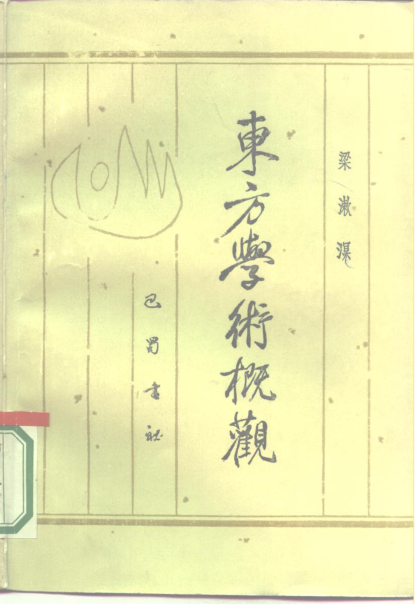 梁漱溟
東方學術概觀
巴蜀書社